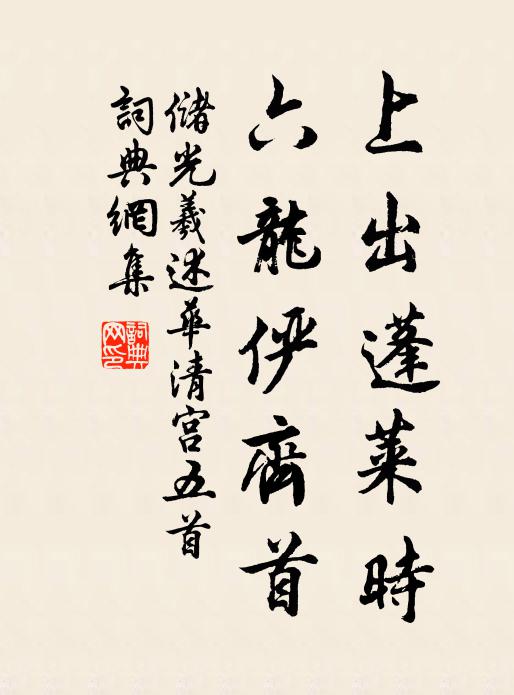 上出蓬萊時
六龍俨齊首
儲光羲述華清宮五首
詞典網集
詞典网印